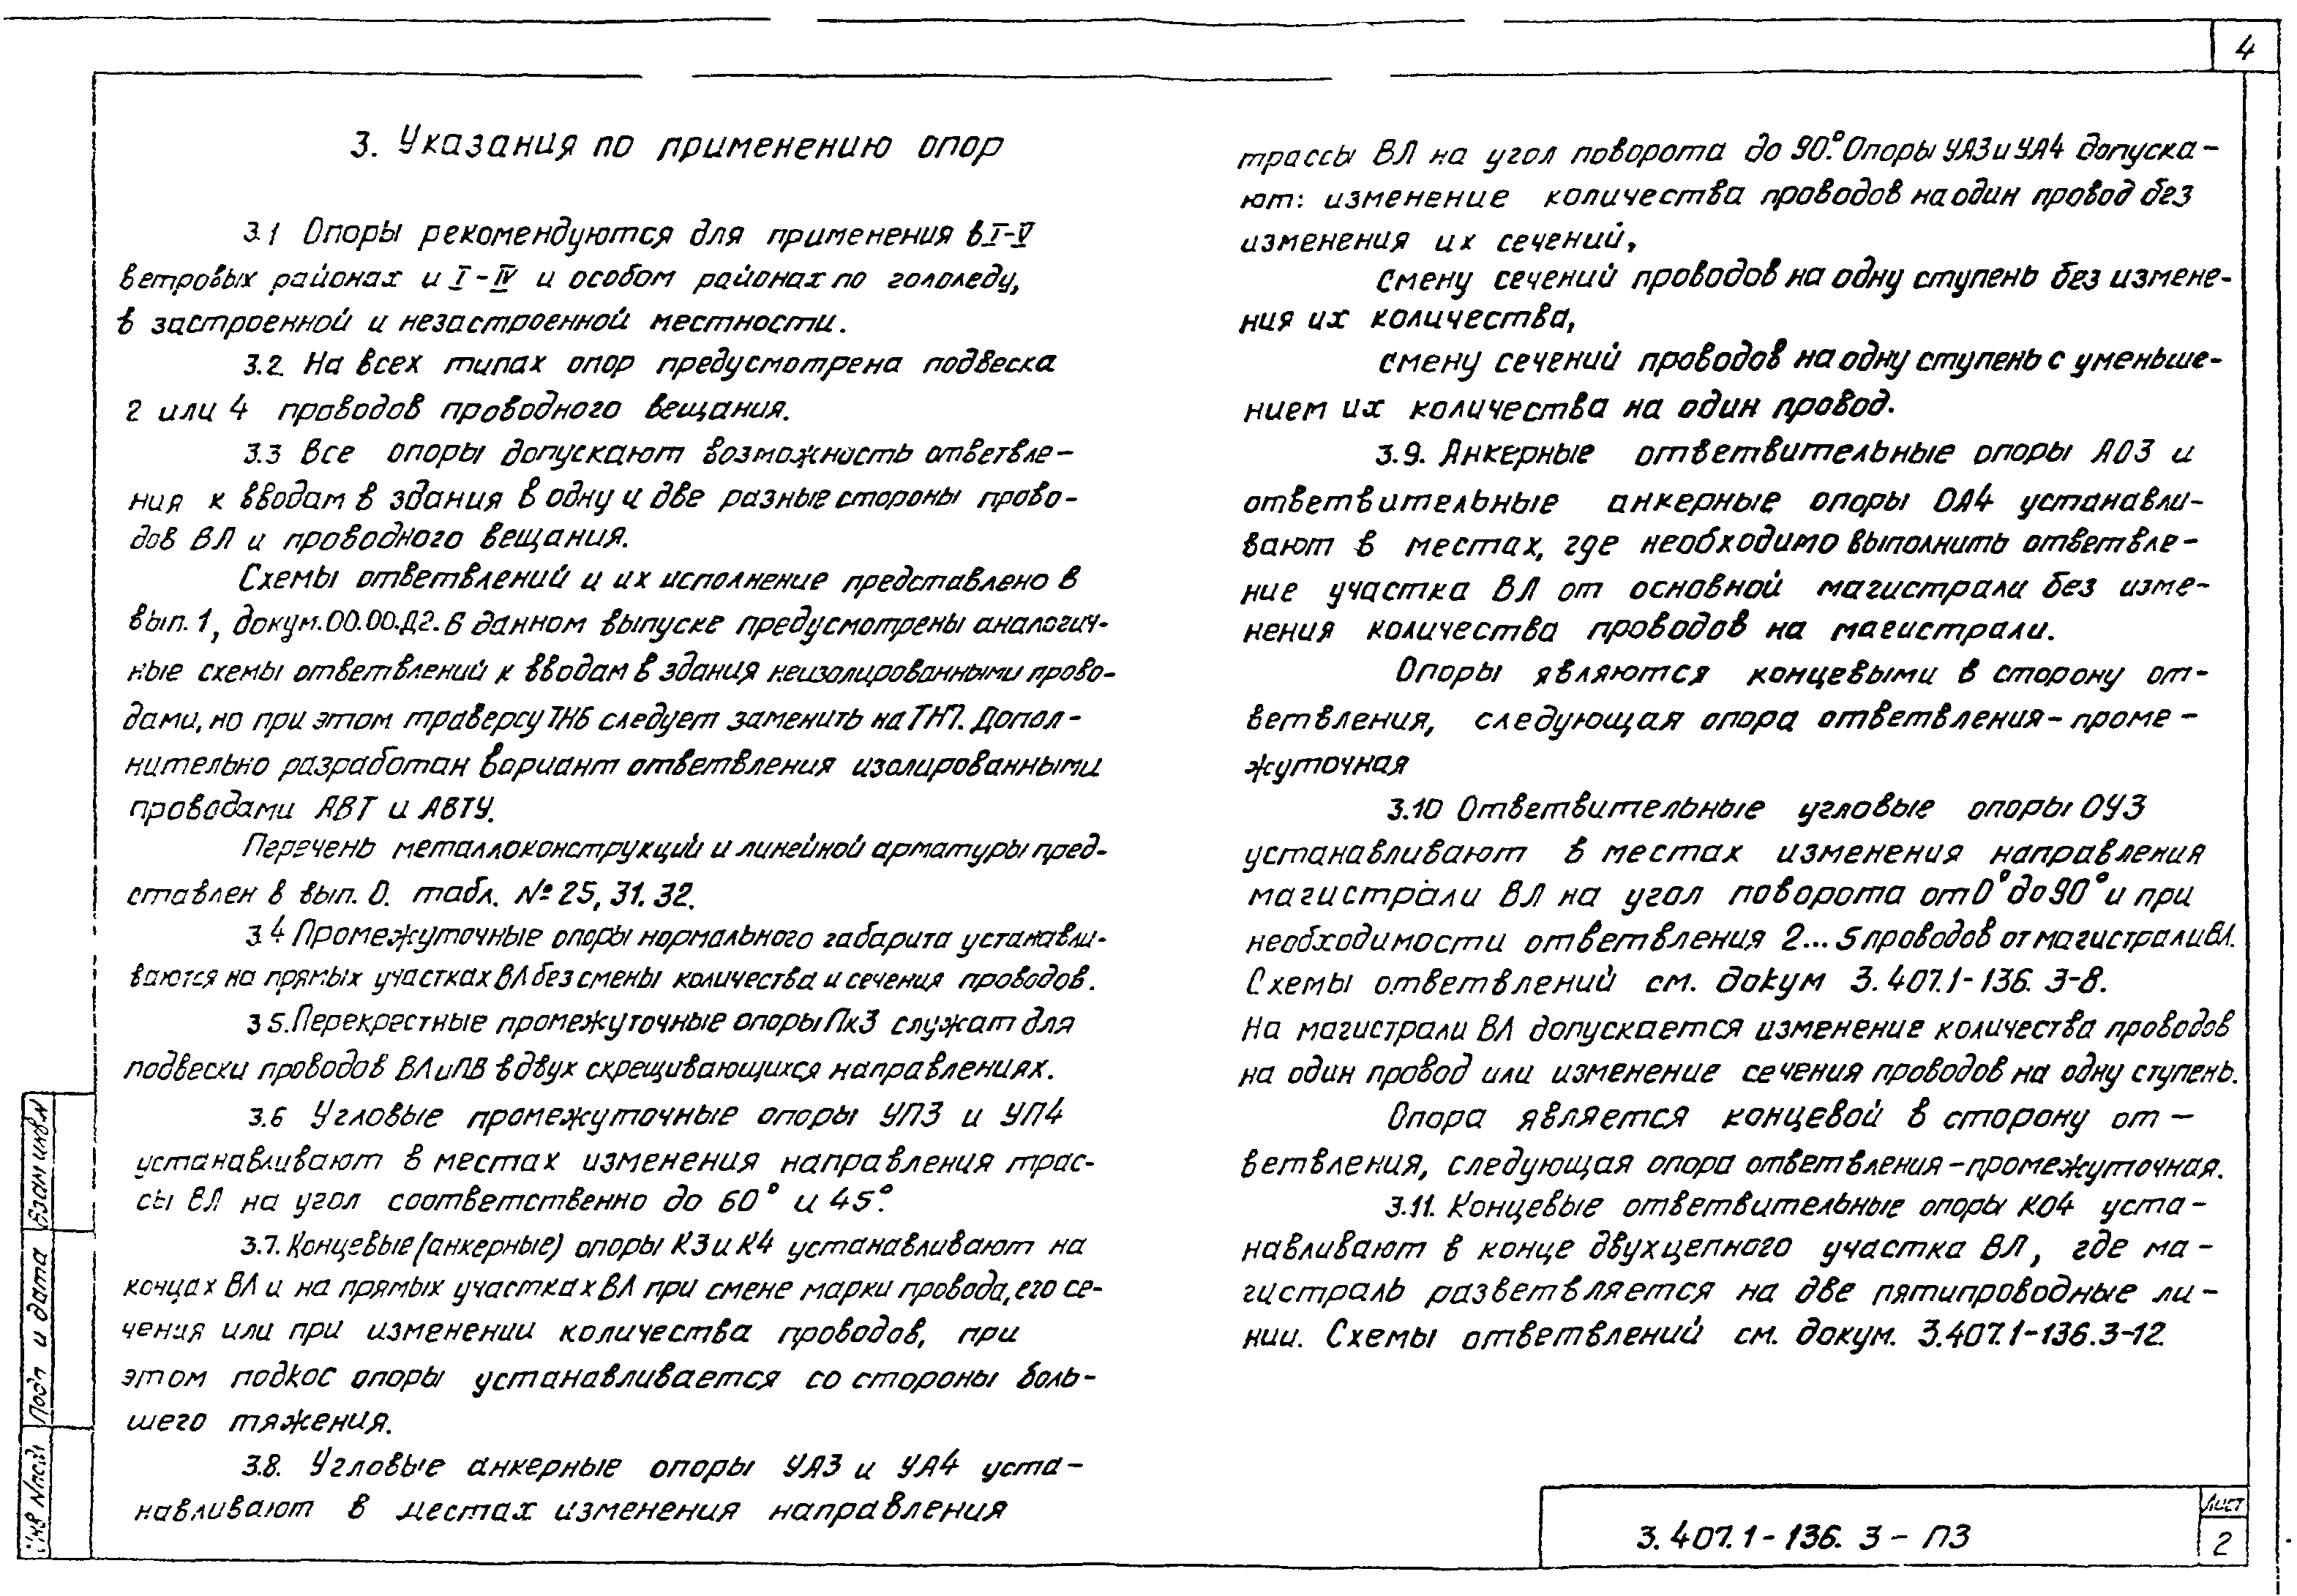 4
3. Указания по применению опор
3.1 Опоры рекомендуются для применения в I-V
ветровых районах и I-IV и особом районах по гололеду,
в застроенной и незастроенной местности.
3.2. На всех типах опор предусмотрена подвеска
2 или 4 проводов проводного вещания.
3.3 Все опоры допускают возможность ответвле-
ния к вводам в здания в одну и две разные стороны прово-
дов ВЛ и проводного вещания.
Схемы ответвлений и их исполнение представлено в
вып. 1, докум. 00.00.Д2. В данном выпуске предусмотрены аналогич-
ные схемы ответвлений к вводам в здания неизолированными прово-
дами, но при этом траверсу ТН6 следует заменить на ТН7. Допол-
нительно разработан вариант ответвления изолированными
проводами АВТ и АВТУ.
Перечень металлоконструкций и линейной арматуры пред-
ставлен в вып. 0. табл. № 25, 31. 32.
3.4 Промежуточные опоры нормального габарита устанавли-
ваются на прямых участках ВЛ без смены количества и сечения проводов.
3 5. Перекрестные промежуточные опоры Пк3 служат для
подвески проводов ВЛ и ПВ в двух скрещивающихся направлениях.
3.6 Угловые промежуточные опоры УП3 и УП4
устанавливают в местах изменения направления трас-
сы ВЛ на угол соответственно до 60° и 45°.
3.7. Концевые (анкерные) опоры К3 и К4 устанавливают на
концах ВЛ и на прямых участках ВЛ при смене марки провода, его се-
чения или при изменении количества проводов, при
этом подкос опоры устанавливается со стороны боль-
шего тяжения.
3.8. Угловые анкерные опоры УА3 и УА4 уста-
навливают в местах изменения направления
трассы ВЛ на угол поворота до 90°. Опоры УА3 и УА4 допуска-
ют: изменение количества проводов на один провод без
изменения их сечений,
смену сечений проводов на одну ступень без измене-
ния их количества,
смену сечений проводов на одну ступень с уменьше-
нием их количества на один провод.
3.9. Анкерные ответвительные опоры АО3 и
ответвительные анкерные опоры ОА4 устанавли-
вают в местах, где необходимо выполнить ответвле-
ние участка ВЛ от основной магистрали без изме-
нения количества проводов на магистрали.
Опоры являются концевыми в сторону от-
ветвления, следующая опора ответвления - проме-
жуточная
3.10 Ответвительные угловые опоры ОУ3
устанавливают в местах изменения направления
магистрали ВЛ на угол поворота от 0° до 90° и при
необходимости ответвления 2...5 проводов от магистрали ВЛ.
Схемы ответвлений см. докум 3.407.1-136. 3-8.
На магистрали ВЛ допускается изменение количества проводов
на один провод или изменение сечения проводов на одну ступень.
Опора является концевой в сторону от-
ветвления, следующая опора ответвления - промежуточная.
3.11. Концевые ответвительные опоры КО4 уста-
навливают в конце двухцепного участка ВЛ, где ма-
гистраль разветвляется на две пятипроводные ли-
нии. Схемы ответвлений см. докум. 3.407.1-136.3-12.
Взам инв.N
Подп и дата
Инв N подл
3.407.1-136. 3 - ПЗ
Лист
2